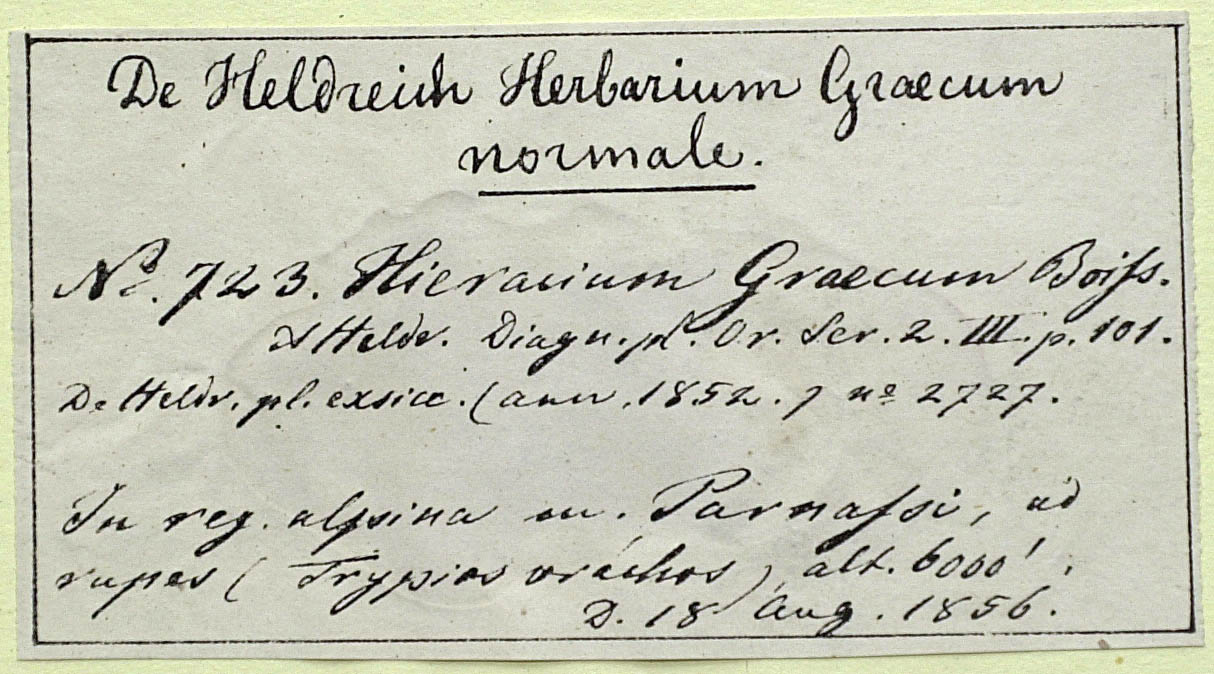 De Heldreich Herbarium Graecum
normale.
No. 723. Hieracium Graecum Boiss.
et Heldr. Diagn. pl. Or. Ser. 2. III. p. 101.
De Heldr. pl. exsicc. (ann. 1852.) no 2727.
In reg. alpina m. Parnassi, ad
rupes (Trypios vráchos) alt. 6000'.
D. 18 Aug. 1856.